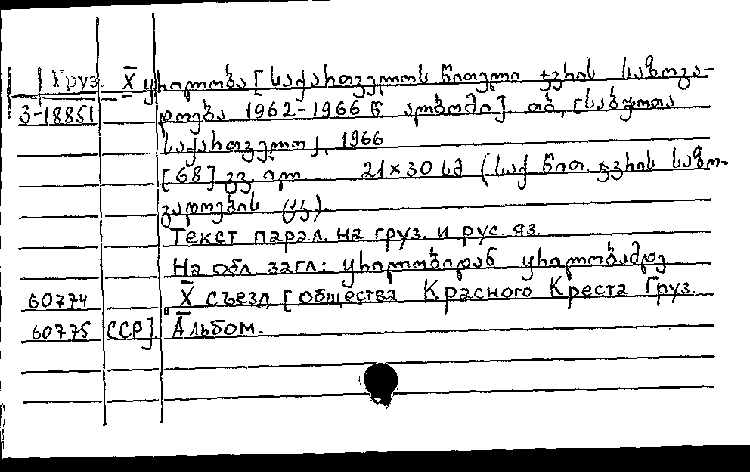 Груз. X̅ ყრილობა [საქართველოს წითელი ჯვრის საზოგა-
3-18851 დოება 1962-1966 წ ალბომი] თბ, [საბჭოთა
საქართველო], 1966
[68] გვ. ილ 21×30 სმ (საქ წით. ჯვრის საზო-
გადოების ცკ).
Текст парал. на груз. и рус. яз.
На обл. загл: ყრილობიდან ყრილობამდე
60774 X̅ съезд [общества Красного Креста Груз.
60775 ССР]. Альбом.